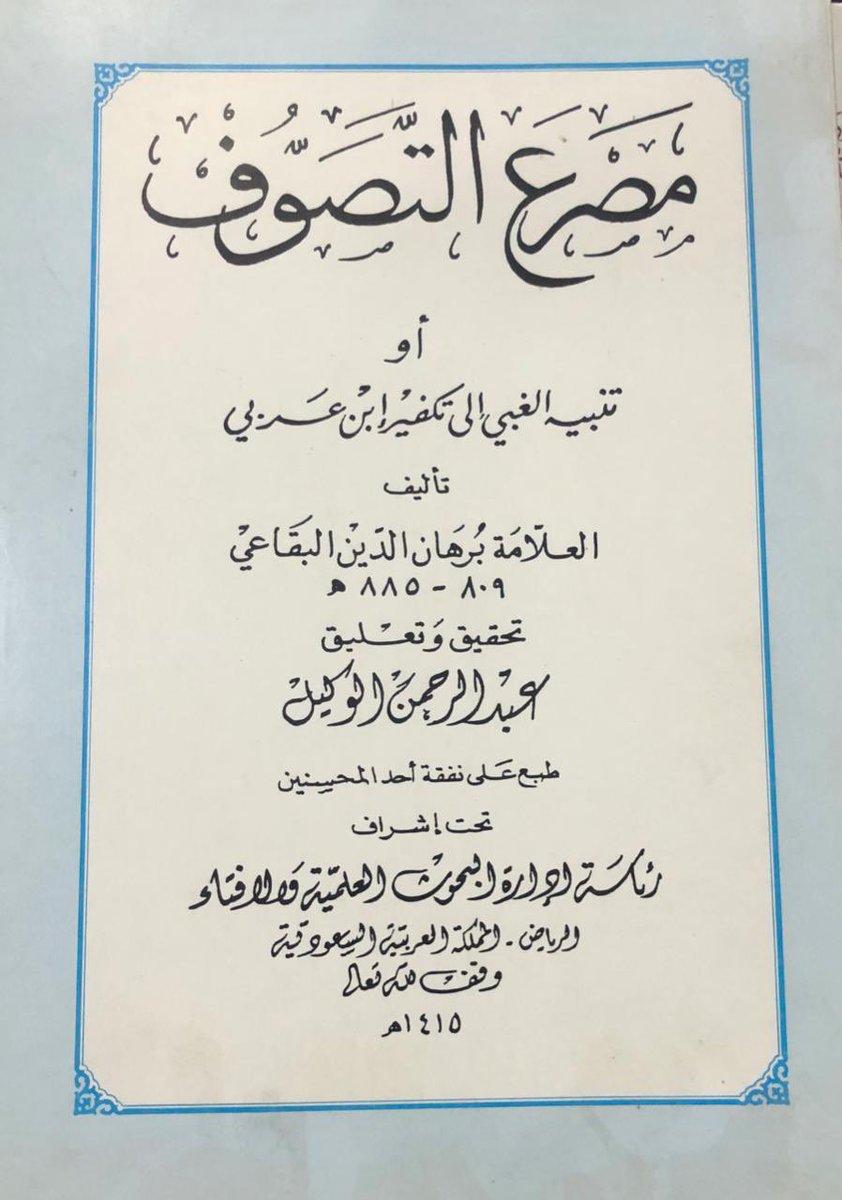 مَصْرَع التَّصَوُّف
أو
تنبيه الغبي إلى تكفير إبن عَربي
تأليف
العلّامَة بُرهَان الدّيْن البقَاعيْ
٨٠٩ - ٨٨٥ هـ
تحقيق وَتعْليق
عبْد الرحمن الوكيل
طبع عَلى نفقة أحد المحسِنين
تحت إشراف
رئاسة إدارة البحوث العلميّة وَالافتاء
الرياض - المملكة العربية السعودية
وقف لله تعالى
١٤١٥هـ